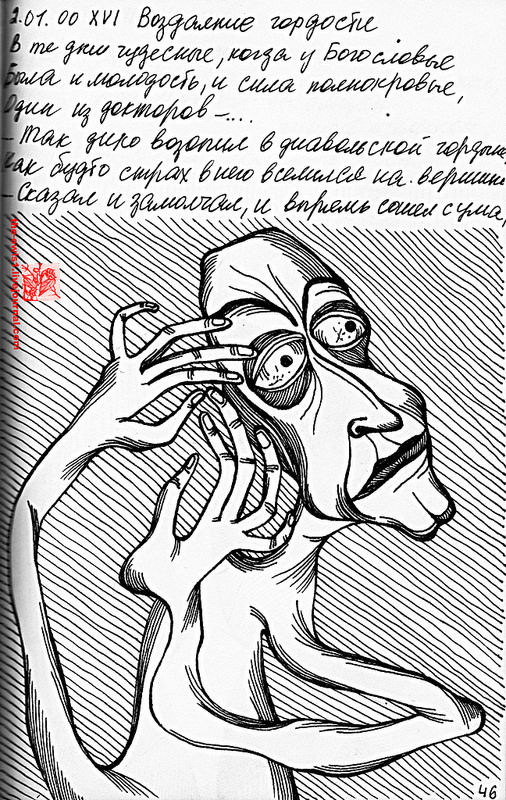 2.01.00 XVI Воздаяние гордости
В те дни чудесные, когда у Богословья
Была и молодость, и сила полнокровья,
Один из докторов –...
– Так дико возопил в диавольской гордыне,
Как будто страх в него вселился на вершине
– Сказал и замолчал, и впрямь сошел с ума,
46